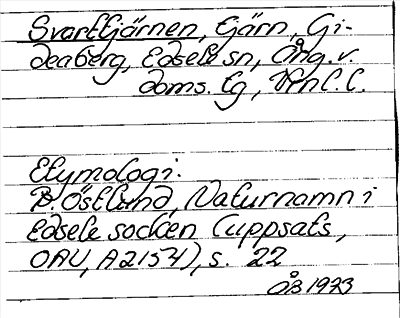 Svarttjärnen, tjärn, Gi-
deaberg, Edsele sn, Ång. v.
doms. tg, Vnl. l.
Etymologi:
B. Östlund, Naturnamn i
Edsele socken (uppsats,
OAU, A2154), s. 22
ÅB 1973